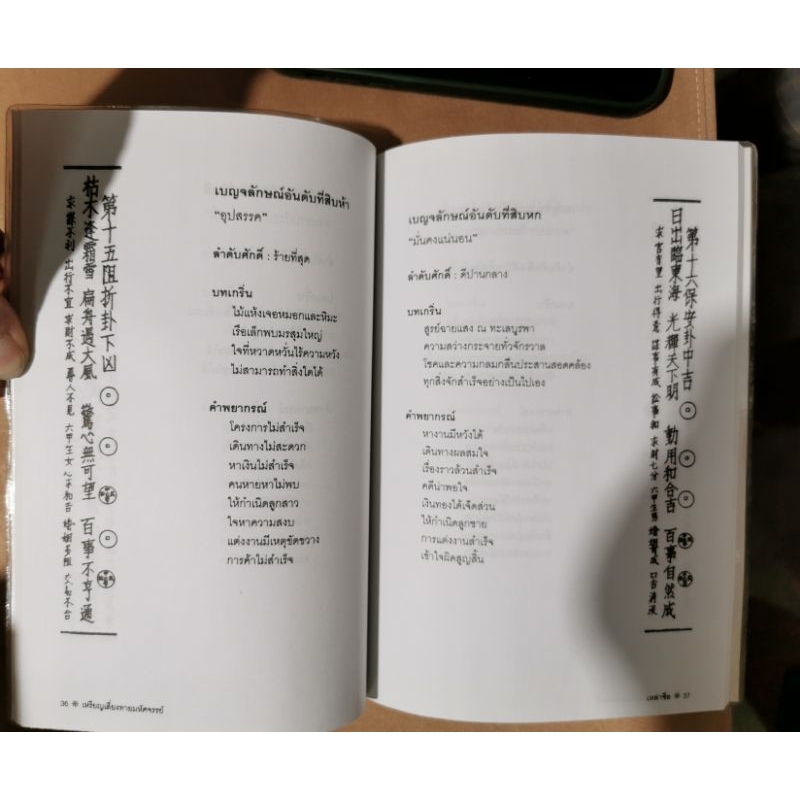 第十五阻折卦下凶
枯木逢霜雪 扁舟遇大風 驚心無可望 百事不亨通
求謀不利 出行不宜 求財不成 尋人不見 六甲生女 心平和吉 婚姻多阻 交易不合
เบญจลักษณ์อันดับที่สิบห้า
"อุปสรรค"
ลำดับศักดิ์ : ร้ายที่สุด
บทเกริ่น
ไม้แห้งเจอหมอกและหิมะ
เรือเล็กพบมรสุมใหญ่
ใจที่หวาดหวั่นไร้ความหวัง
ไม่สามารถทำสิ่งใดได้
คำพยากรณ์
โครงการไม่สำเร็จ
เดินทางไม่สะดวก
หาเงินไม่สำเร็จ
คนหายหาไม่พบ
ให้กำเนิดลูกสาว
ใจหาความสงบ
แต่งงานมีเหตุขัดขวาง
การค้าไม่สำเร็จ
36 ※ เหรียญเสี่ยงทายมหัศจรรย์
เบญจลักษณ์อันดับที่สิบหก
"มั่นคงแน่นอน"
ลำดับศักดิ์ : ดีปานกลาง
บทเกริ่น
สูรย์ฉายแสง ณ ทะเลบูรพา
ความสว่างกระจายทั่วจักรวาล
โชคและความกลมกลืนประสานสอดคล้อง
ทุกสิ่งจักสำเร็จอย่างเป็นไปเอง
คำพยากรณ์
หางานมีหวังได้
เดินทางผลสมใจ
เรื่องราวล้วนสำเร็จ
คดีน่าพอใจ
เงินทองได้เจ็ดส่วน
ให้กำเนิดลูกชาย
การแต่งงานสำเร็จ
เข้าใจผิดสูญสิ้น
第十六保安卦中吉
日出臨東海 光輝天下明 動用和合吉 百事自然成
求官有望 出行得意 謀事有成 訟事和 求財七分 六甲生男 婚姻成 口舌消滅
เหล่าซือ ※ 37